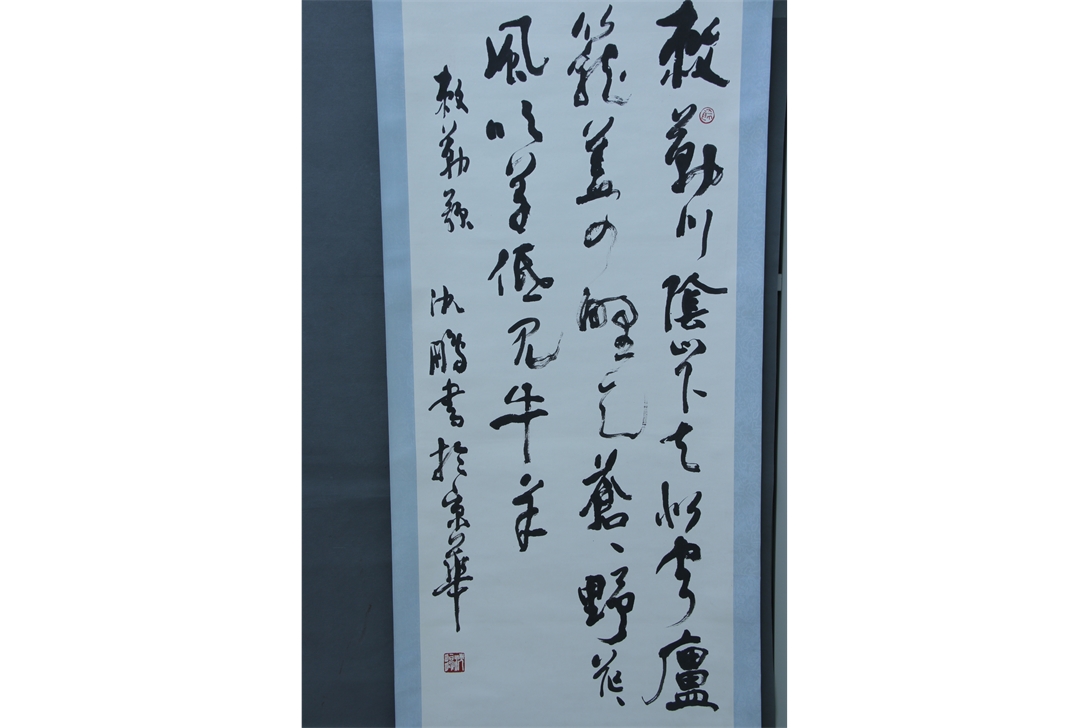 敕勒川陰山下天似穹廬
籠蓋四野天蒼、野茫、
風吹草低見牛羊
敕勒歌 沈鵬書於京華